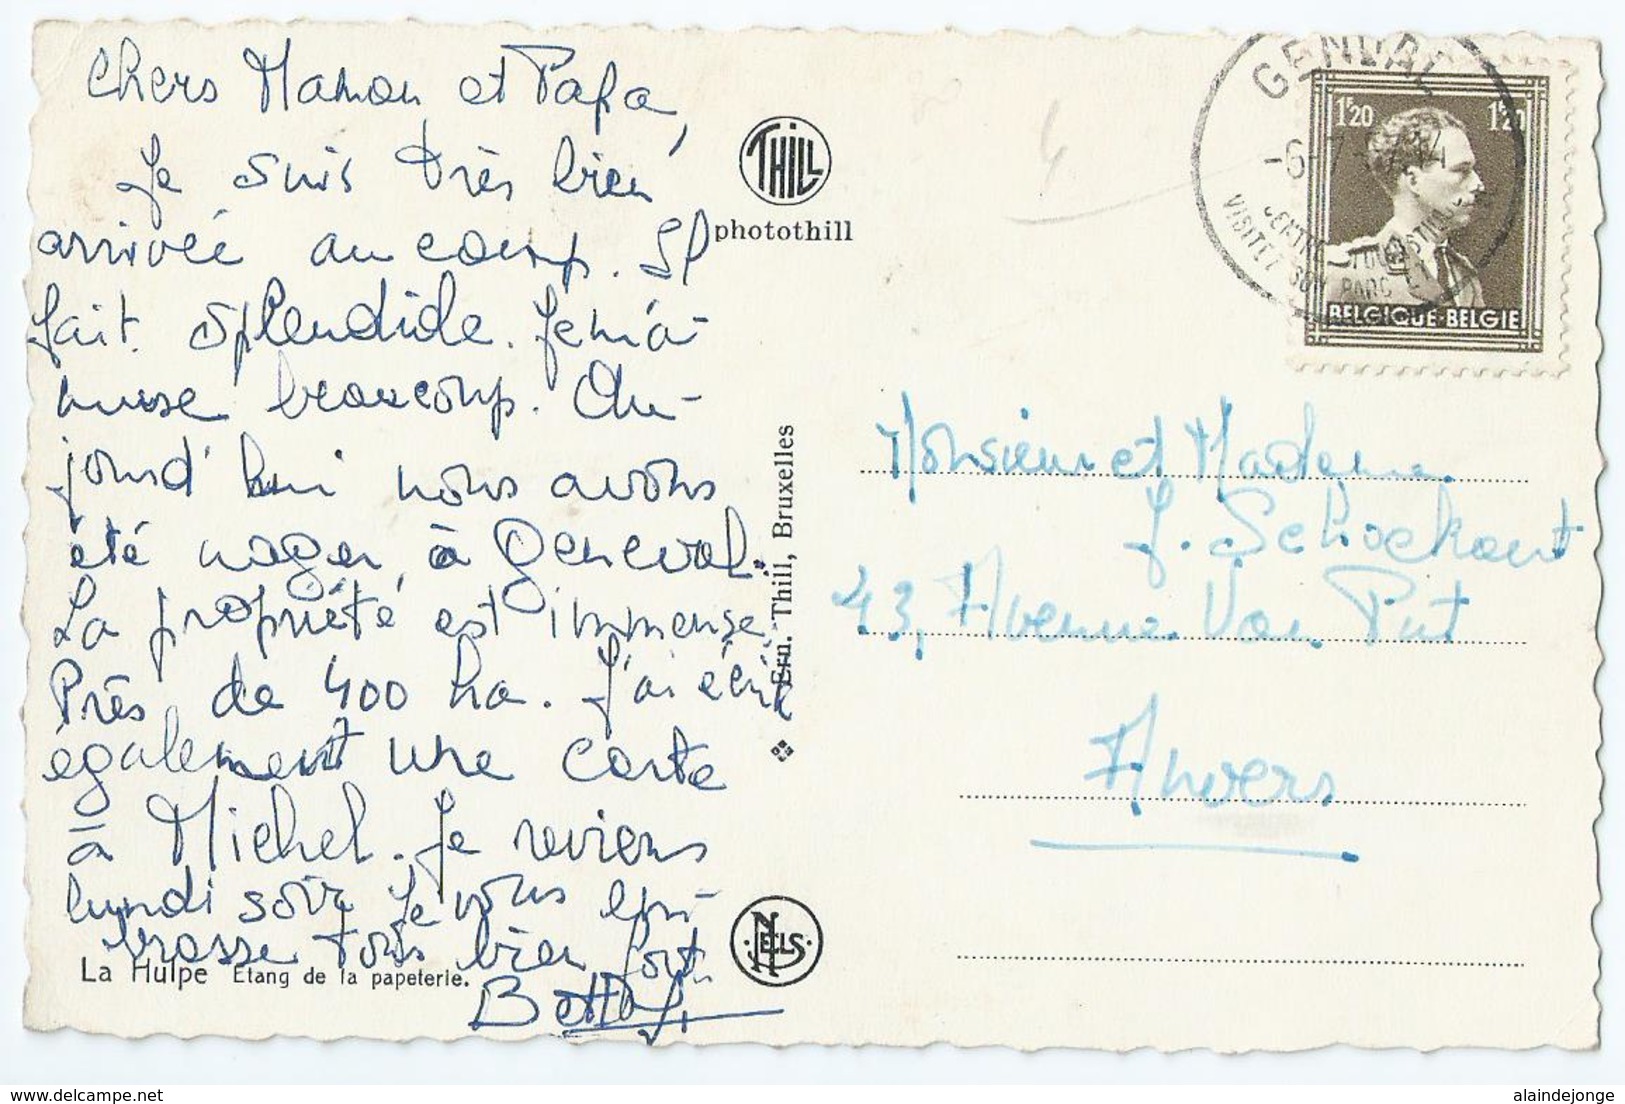 Chers Maman et Papa,
Je suis très bien
arrivée au camp. Il
fait splendide. Je m'a-
muse beaucoup. Au-
jourd'hui nous avons
été nager à Genval.
La propriété est immense.
Près de 400 ha. J'ai écrit
également une carte
à Michel. Je reviens
lundi soir. Je vous em-
brasse tous bien fort.
Betty
La Hulpe Etang de la papeterie.
THILL
photothill
Ern. Thill, Bruxelles
NELS
GENVAL
-6-7-
14
CENTRE TOURISTIQUE
VISITEZ SON PARC
1F20 1F20
BELGIQUE-BELGIE
Monsieur et Madame
J. Schockaert
43, Avenue Van Put
Anvers
www.delcampe.net
alaindejonge